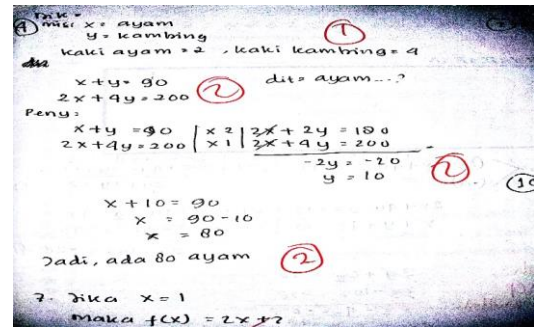 Dik =
4 misi x = ayam 1
y = kambing
kaki ayam = 2 , kaki kambing = 4
x + y = 90 dit = ayam ....?
2x + 4y = 200 2
Peny =
x + y = 90 | x 2 | 2x + 2y = 180
2x + 4y = 200 | x 1 | 2x + 4y = 200 -
-2y = -20 2
y = 10
x + 10 = 90
x = 90 - 10
x = 80
Jadi, ada 80 ayam 2
7. Jika x = 1
maka f(x) = 2x + ?